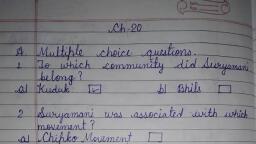 Ch-20
A. Multiple choice questions.
1 To which community did Suryamani
belong?
a) Kuduk b) Bhils
2 Suryamani was associated with which
movement?
a) Chipko Movement